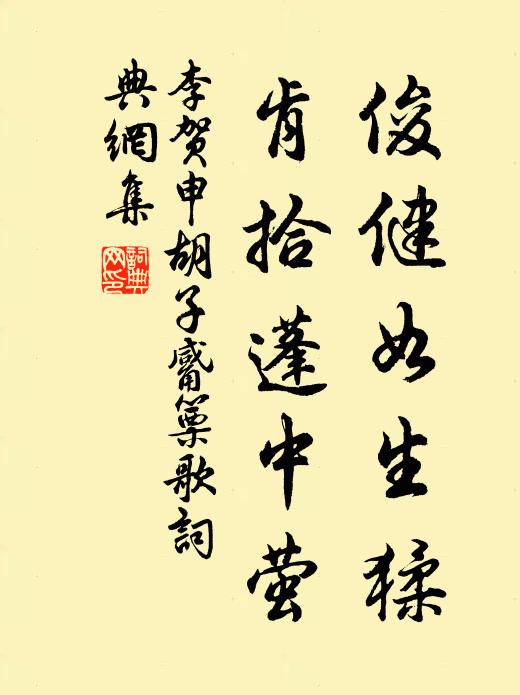 俊健如生猱
肯拾蓬中萤
李贺申胡子觱篥歌詞
典網集
詞典网印